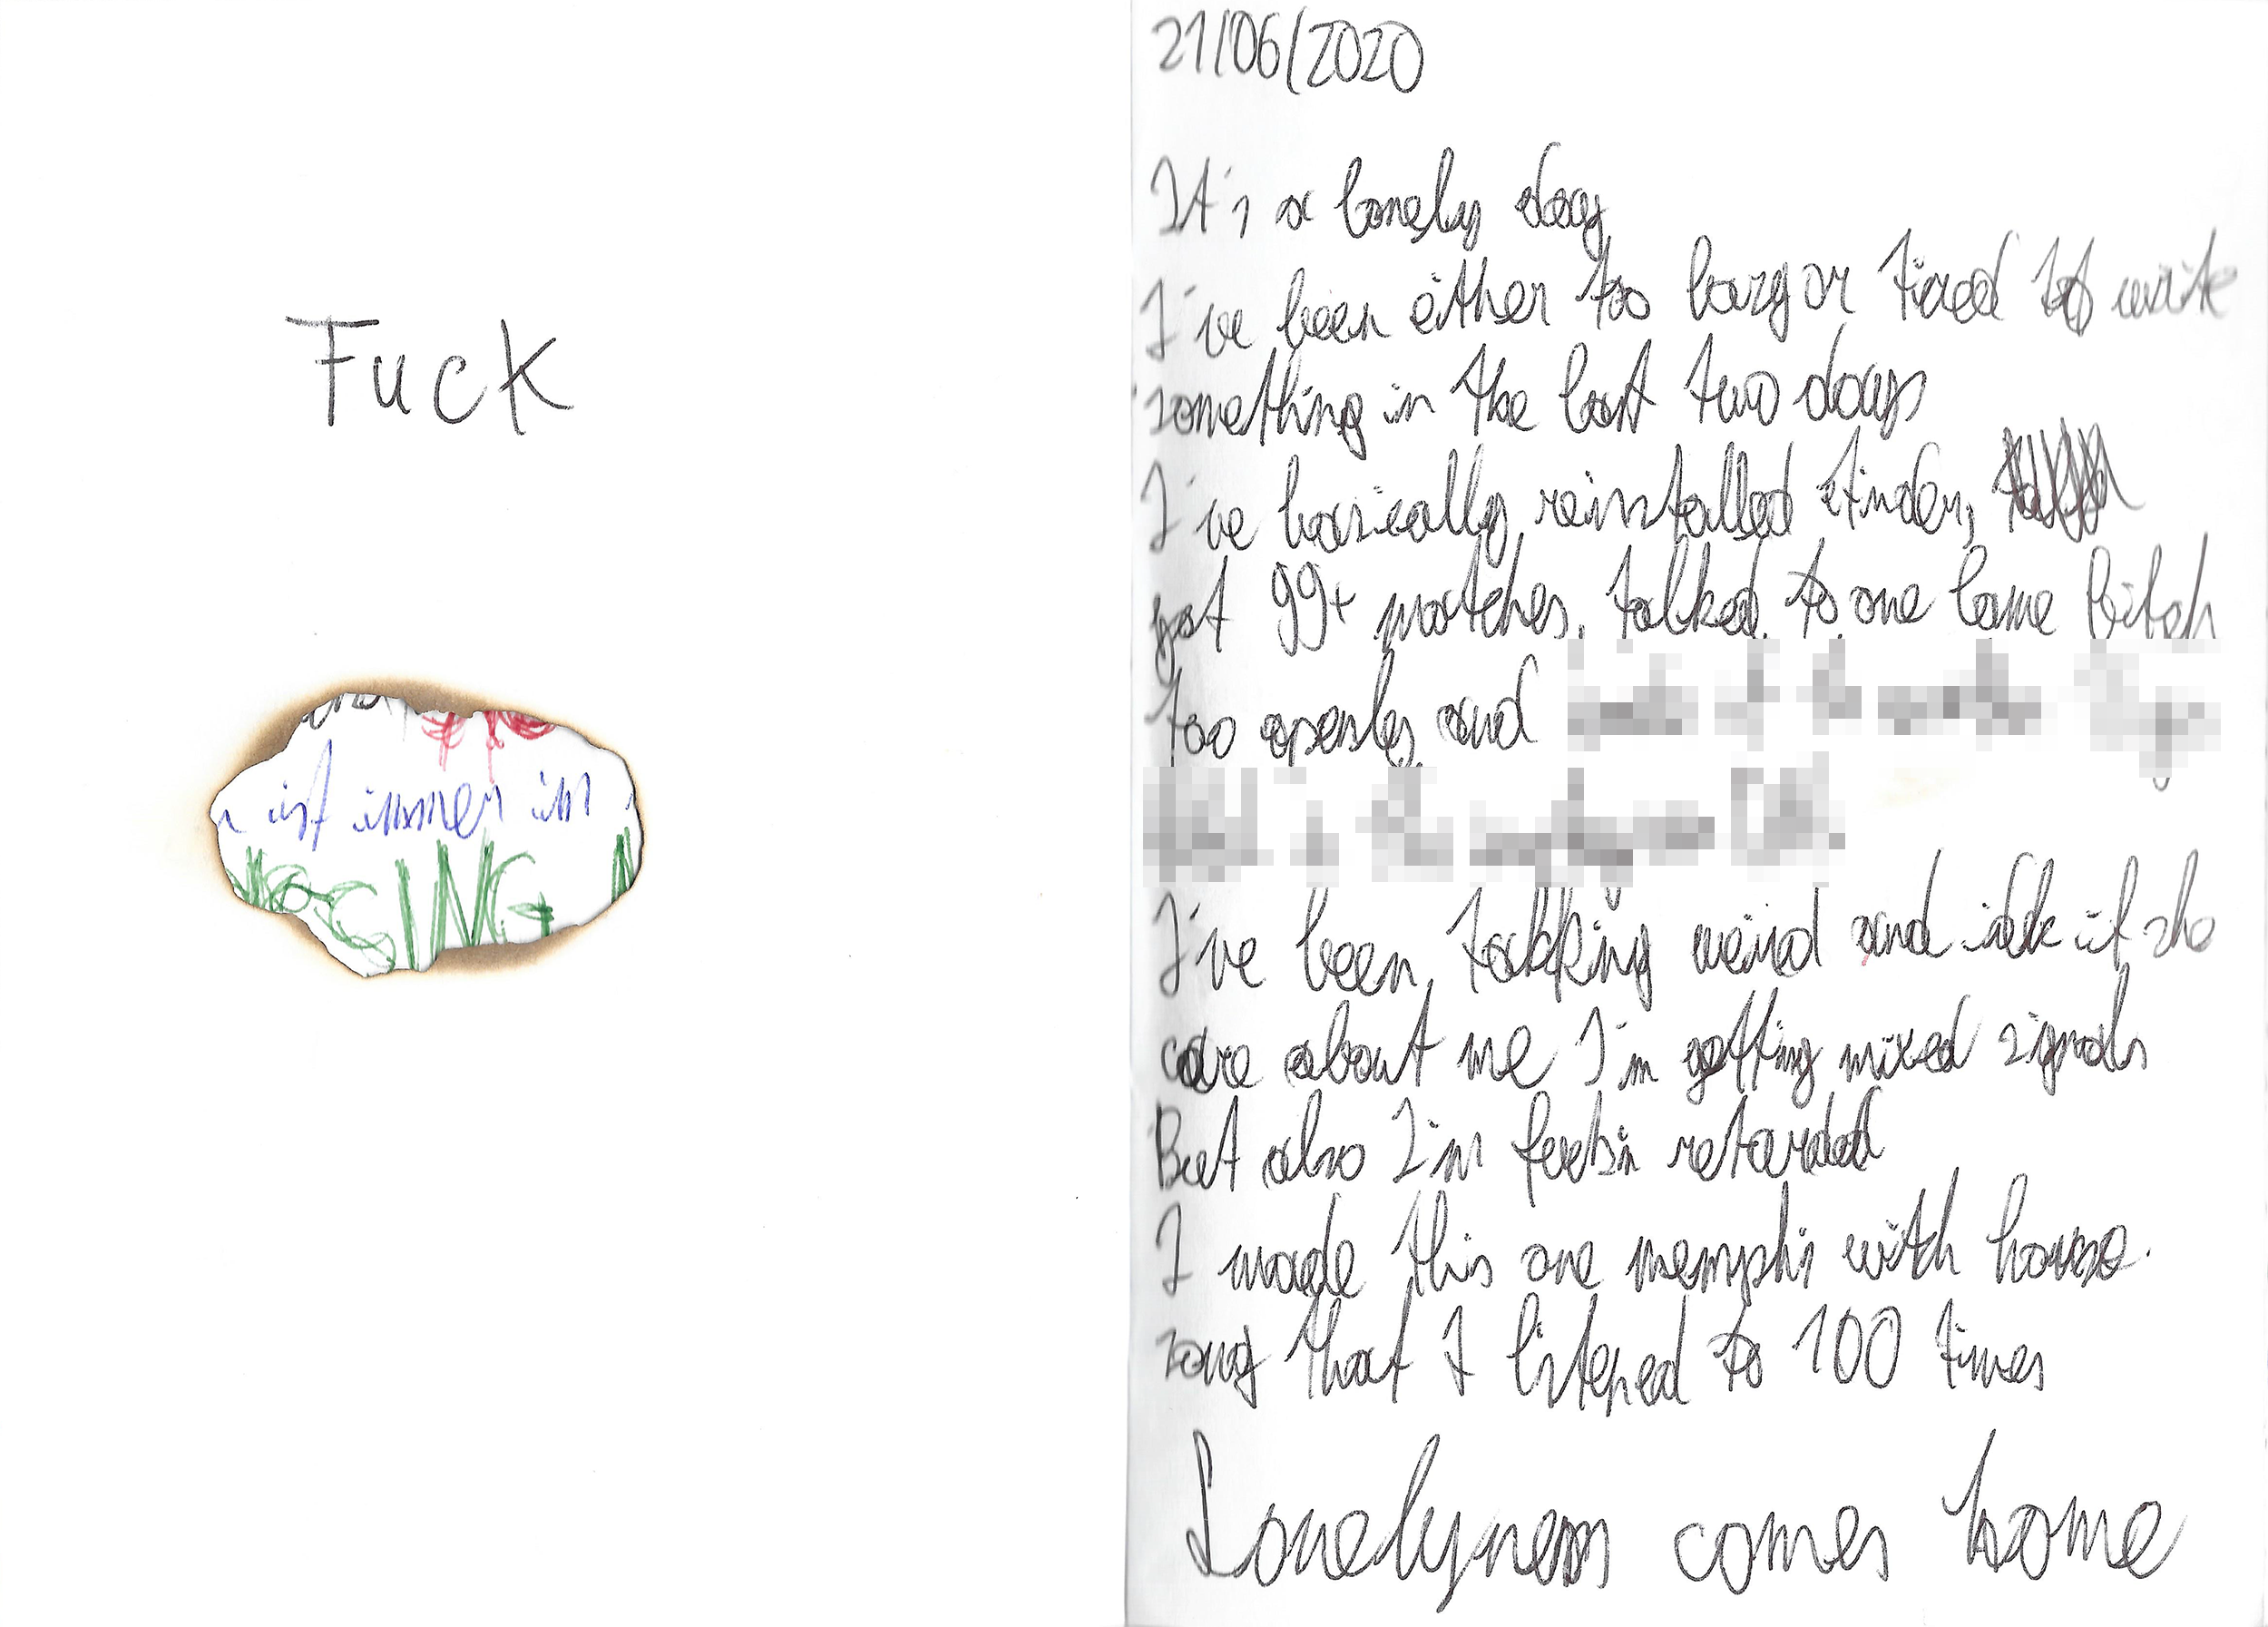 Fuck
ist immer im
ING
21/06/2020
It's a lonely day
I've been either too lazy or tired to write
something in the last two days
I've basically reinstalled tinder,
got 99+ matches, talked to one lame bitch
too openly and
I've been talking weird and idk if she
care about me I'm getting mixed signals
But also I'm feelin retarded
I made this one memphis with house
song that I listened to 100 times
Lonelyness comes home